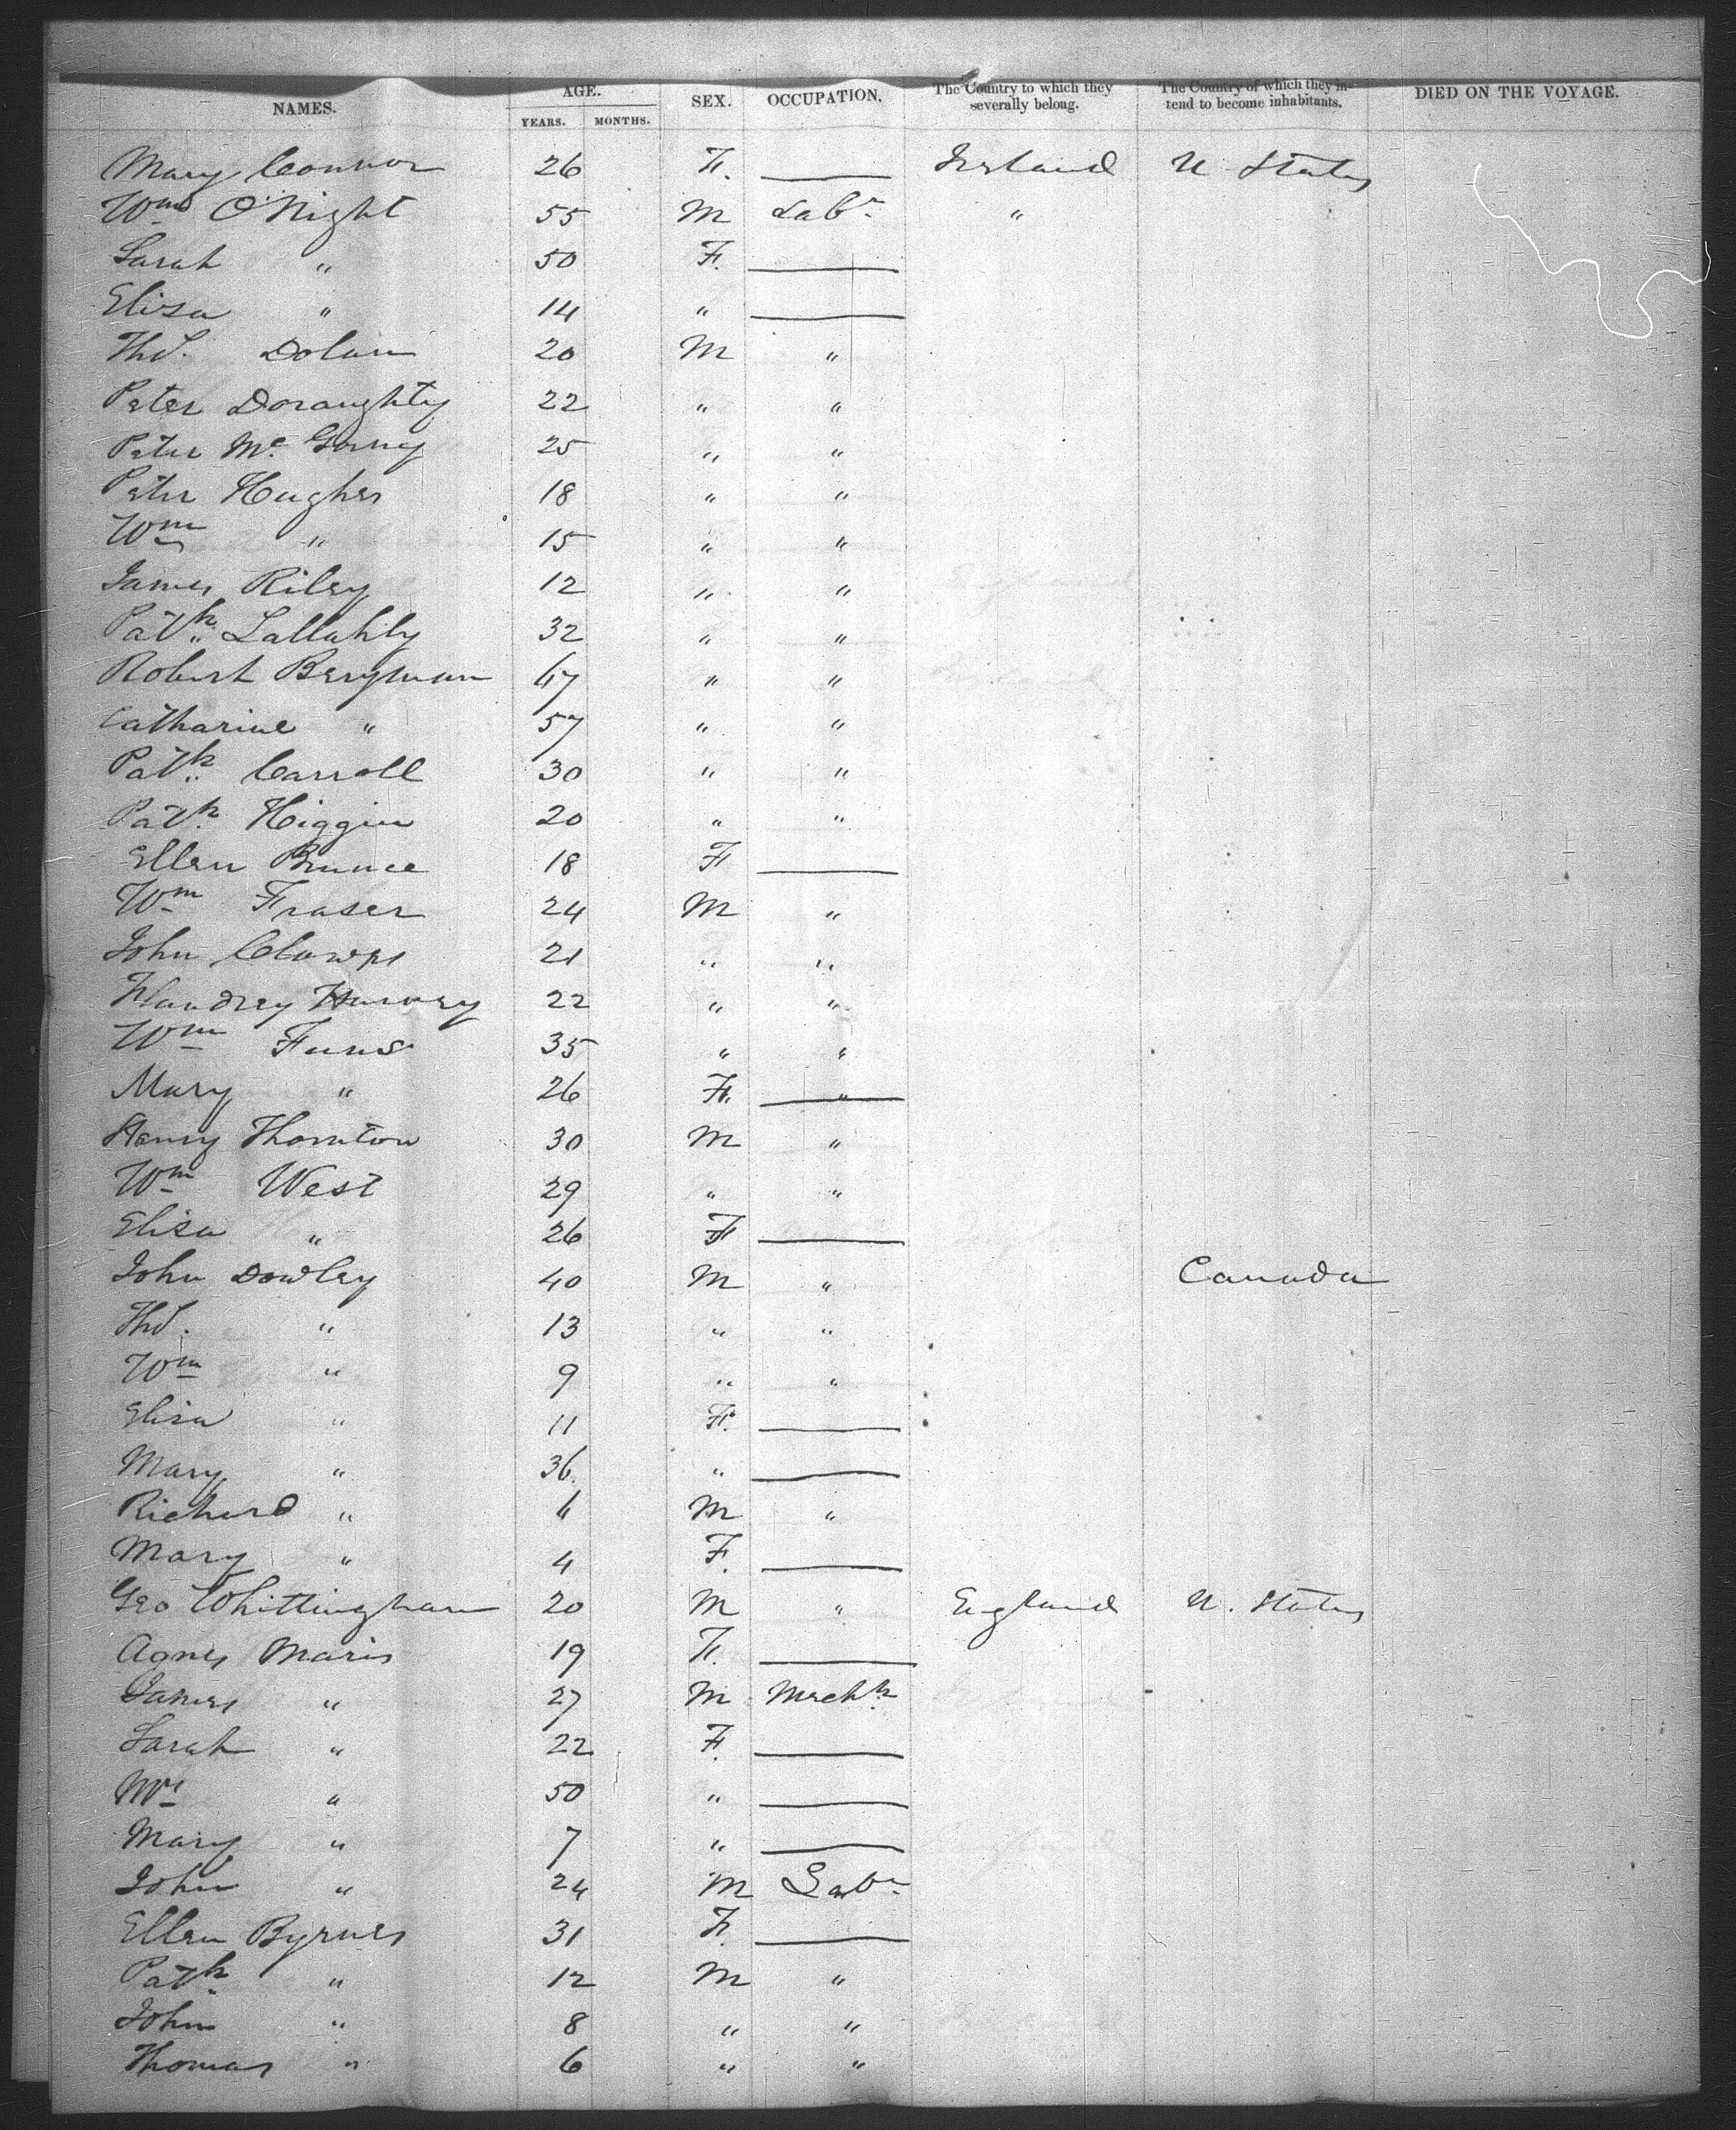 NAMES. AGE. YEARS. MONTHS. SEX. OCCUPATION. The Country to which they severally belong. The Country of which they intend to become inhabitants. DIED ON THE VOYAGE.
Mary Connor 26 F. Ireland U States
Wm O'Night 55 M Labr "
Sarah " 50 F.
Eliza " 14 "
Thos. Dolan 20 M "
Peter Doraughty 22 " "
Peter Mc Gorry 25 " "
Peter Hughes 18 " "
Wm " 15 " "
James Riley 12 " "
Patk Lallahly 32 " "
Robert Bergman 67 " "
Catharine " 57 " "
Patk Carroll 30 " "
Patk Higgin 20 " "
Ellen Prunce 18 F
Wm Fraser 24 M "
John Clowes 21 " "
Harvey 22 " "
Wm Funs 35 " "
Mary " 26 F. "
Henry Thornton 30 M "
Wm West 29 " "
Eliza " 26 F
John Dowley 40 M " Canada
Thos. " 13 " "
Wm " 9 " "
Eliza " 11 F.
Mary " 36 "
Richard " 6 M "
Mary " 4 F.
Geo Whittingham 20 M " England U. States
Agnes Maris 19 F.
James " 27 M Mechk
Sarah " 22 F.
Mrs " 50 "
Mary " 7 "
John " 24 M Labr
Ellen Byrnes 31 F.
Patk " 12 M "
John " 8 " "
Thomas " 6 " "